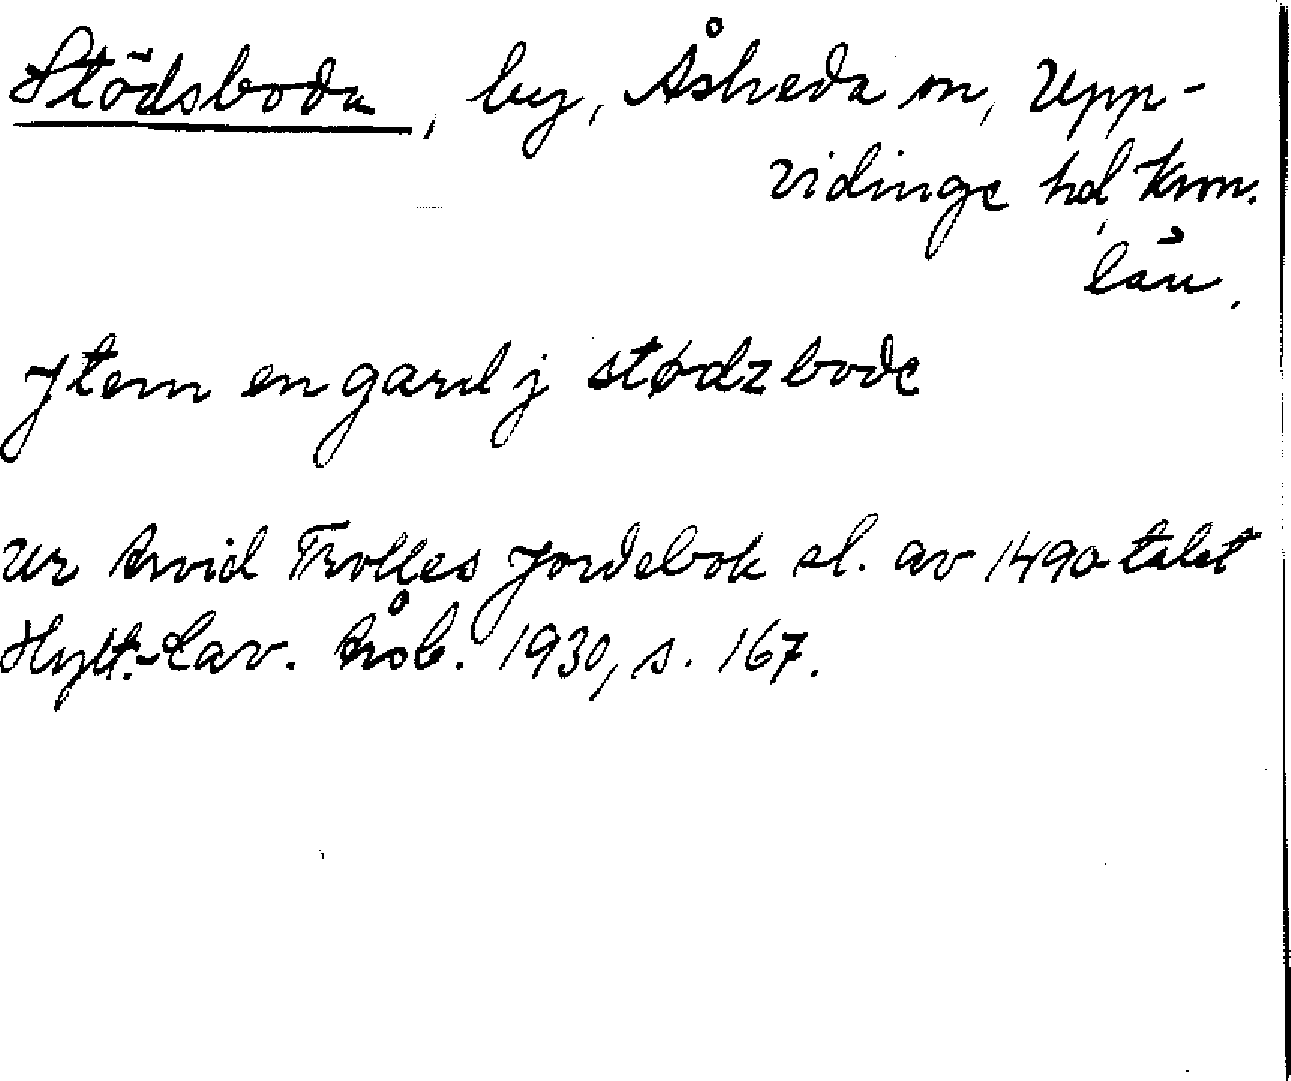 Stödsboda, by, Åsheda sn, Upp-
vidinge hd, Kron.
län.
Jtem en gard j stødzbode
Ur Arvid Trolles Jordebok sl. av 1490-talet
Hylt.-Cav. Årsb. 1930, s. 167.